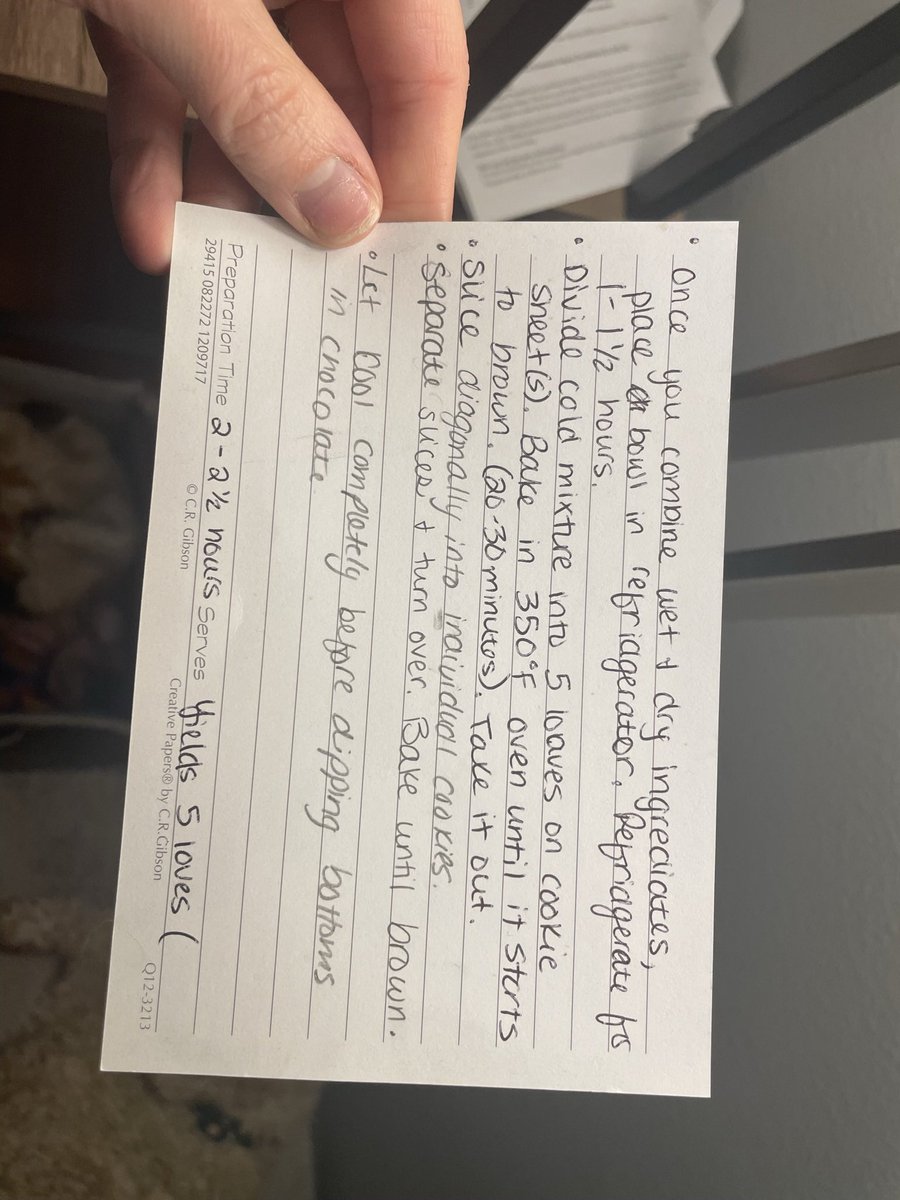 • Once you combine wet + dry ingrediates,
place bowl in refriagerator. Refriagerate for
1-1½ hours.
• Divide cold mixture into 5 loaves on cookie
sheet(s). Bake in 350°F oven until it starts
to brown. (20-30 minutes). Take it out.
• Slice diagonally into individual cookies.
• Separate slices + turn over. Bake until brown.
• Let cool completely before dipping bottoms
in chocolate.
Preparation Time 2-2½ hours Serves Yields 5 loves (
29415 082272 1209717 © C.R. Gibson Creative Papers® by C.R.Gibson Q12-3213